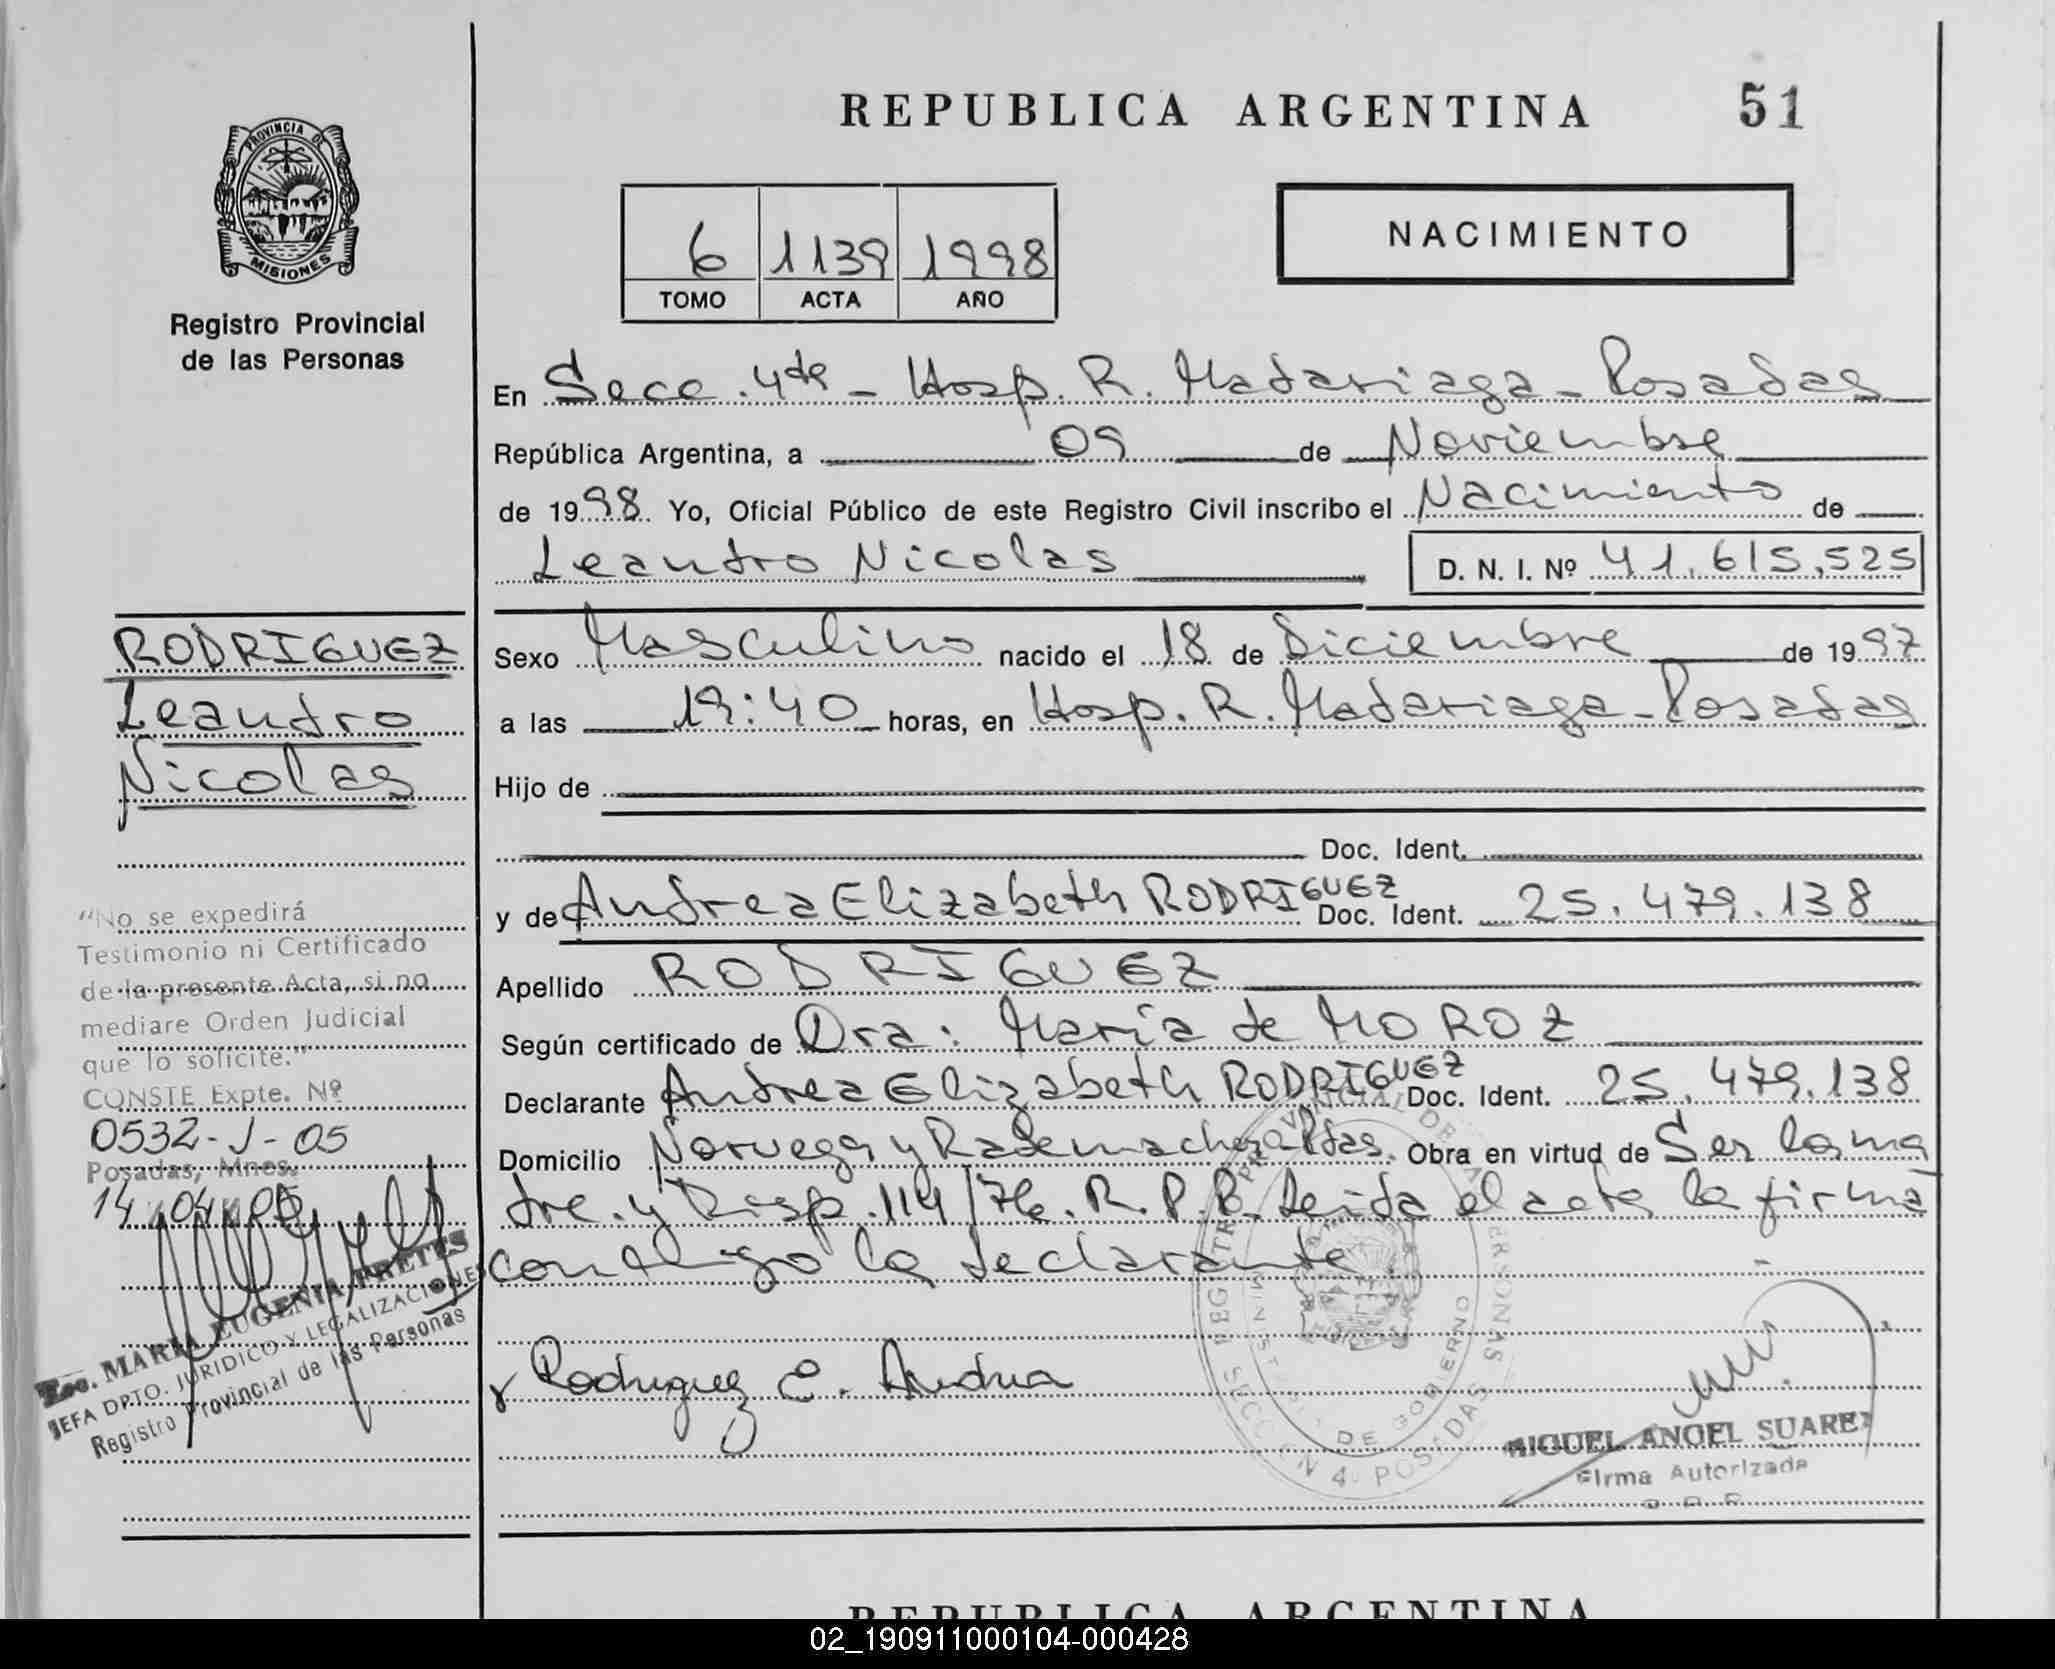 REPUBLICA ARGENTINA 51
PROVINCIA DE
MISIONES
Registro Provincial
de las Personas
6 1139 1998
TOMO ACTA AÑO
NACIMIENTO
En Secc. 4ta - Hosp. R. Madariaga - Posadas
República Argentina, a 09 de Noviembre
de 1998. Yo, Oficial Público de este Registro Civil inscribo el Nacimiento de
Leandro Nicolas D. N. I. Nº 41.615.525
Sexo Masculino nacido el 18 de Diciembre de 1997
a las 19:40 horas, en Hosp. R. Madariaga - Posadas
Hijo de
Doc. Ident.
y de Andrea Elizabeth RODRIGUEZ Doc. Ident. 25.479.138
Apellido RODRIGUEZ
Según certificado de Dra: Maria de MOROZ
Declarante Andrea Elizabeth RODRIGUEZ Doc. Ident. 25.479.138
Domicilio Noruega y Rademacher Pdas. Obra en virtud de Ser la ma
dre. y Disp. 114/76. R. P. P. Leida el acta la firma
conmigo la declarante
Rodriguez E. Andrea
MIGUEL ANGEL SUAREZ
Firma Autorizada
REGISTRO PROVINCIAL DE LAS PERSONAS
MINISTERIO DE GOBIERNO
SECCION 4ª POSADAS
RODRIGUEZ
Leandro
Nicolas
"No se expedirá
Testimonio ni Certificado
de la presente Acta, si no
mediare Orden Judicial
que lo solicite."
CONSTE Expte. Nº
0532-J-05
Posadas, Mnes.
14 04 05
MARIA EUGENIA PRETES
JEFA DPTO. JURIDICO Y LEGALIZACIONES
Registro Provincial de las Personas
REPUBLICA ARGENTINA
02_190911000104-000428